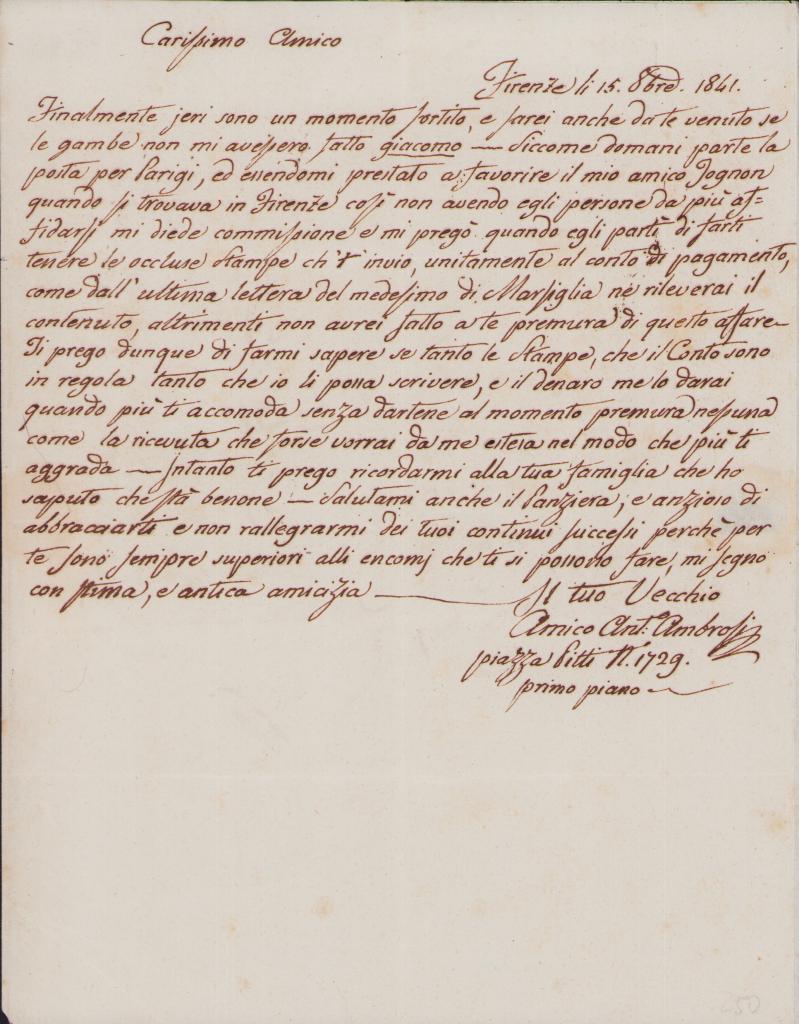 Carissimo Amico
Firenze li 15. 8bre. 1841.
Finalmente jeri sono un momento sortito, e sarei anche da te venuto se
le gambe non mi avessero fatto giacomo — Siccome domani parte la
posta per Parigi, ed essendomi prestato a favorire il mio amico Jognon
quando si trovava in Firenze così non avendo egli persone da più af=
fidarsi mi diede commissione e mi pregò quando egli partì di farti
tenere le occluse Stampe ch'invio, unitamente al conto di pagamento,
come dall'ultima lettera del medesimo di Marsiglia ne rileverai il
contenuto, altrimenti non avrei fatto a te premura di questo affare—
Ti prego dunque di farmi sapere se tanto le Stampe, che il Conto sono
in regola tanto che io li possa scrivere, e il denaro me lo darai
quando più ti accomoda senza dartene al momento premura nessuna
come la ricevuta che forse vorrai da me estesa nel modo che più ti
aggrada — Intanto ti prego ricordarmi alla tua famiglia che ho
saputo che stà benone — Salutami anche il Panziera, e anzioso di
abbracciarti e non rallegrarmi dei tuoi continui successi perchè per
te sono sempre superiori alli encomj che ti si possono fare, mi segno
con stima, e antica amicizia — Il tuo Vecchio
Amico Ant: Ambrosi
piazza Pitti N. 1729.
primo piano —
250